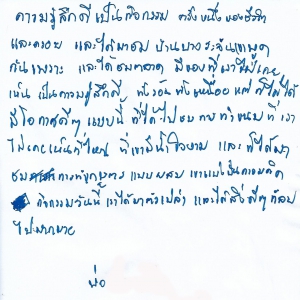 ความรู้สึกดี เป็นกิจกรรม ครั้งหนึ่ง ของชีวิต
และครอบ และได้มาชม บ้านบางระจันเขาพูด
กันเพราะ และได้ชมตลาด มีของที่เราไม่เคย
เห็น เป็นความรู้สึกดี ทั้งร้อน ทั้งเหนื่อย แต่ก็ได้
มีโอกาสดีๆ แบบนี้ ที่ได้ไปชม ที่เรา
ไม่เคยเห็นที่ไหน ที่เขามีน้ำใจงาม และ ก็ได้มา
ชม การเกษตร แบบผสม เขาแบ่งปันความคิด
กิจกรรมวันนี้ เราได้มาตัวเปล่า และได้สิ่งดีๆกลับ
ไปมากมาย
พ่อ